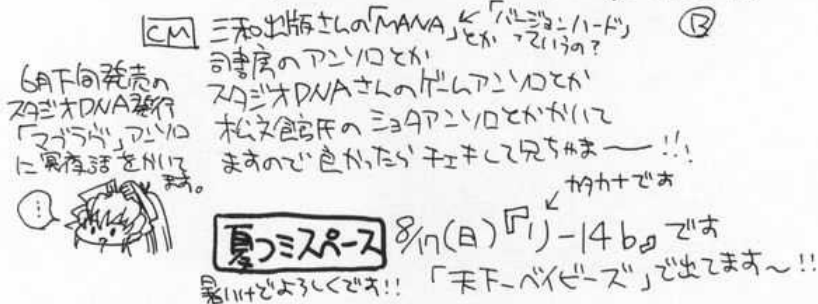 CM 三和出版さんの「MANA」とか ←「バージョンハード」っていうの? ⑬
司書房のアンソロとか
スタジオDNAさんのゲームアンソロとか
松文館氏のショタアンソロとかかいて
ますので良かったらチェキして兄ちゃま――!!
6月下旬発売の
スタジオDNA発行
「マブラヴ」アンソロ
に冥夜話をかいて
ます。
…
カタカナです
夏コミスペース 8/17(日)『リ-14b』です
暑いけどよろしくです!! 「天下一ベイビーズ」で出てます〜!!